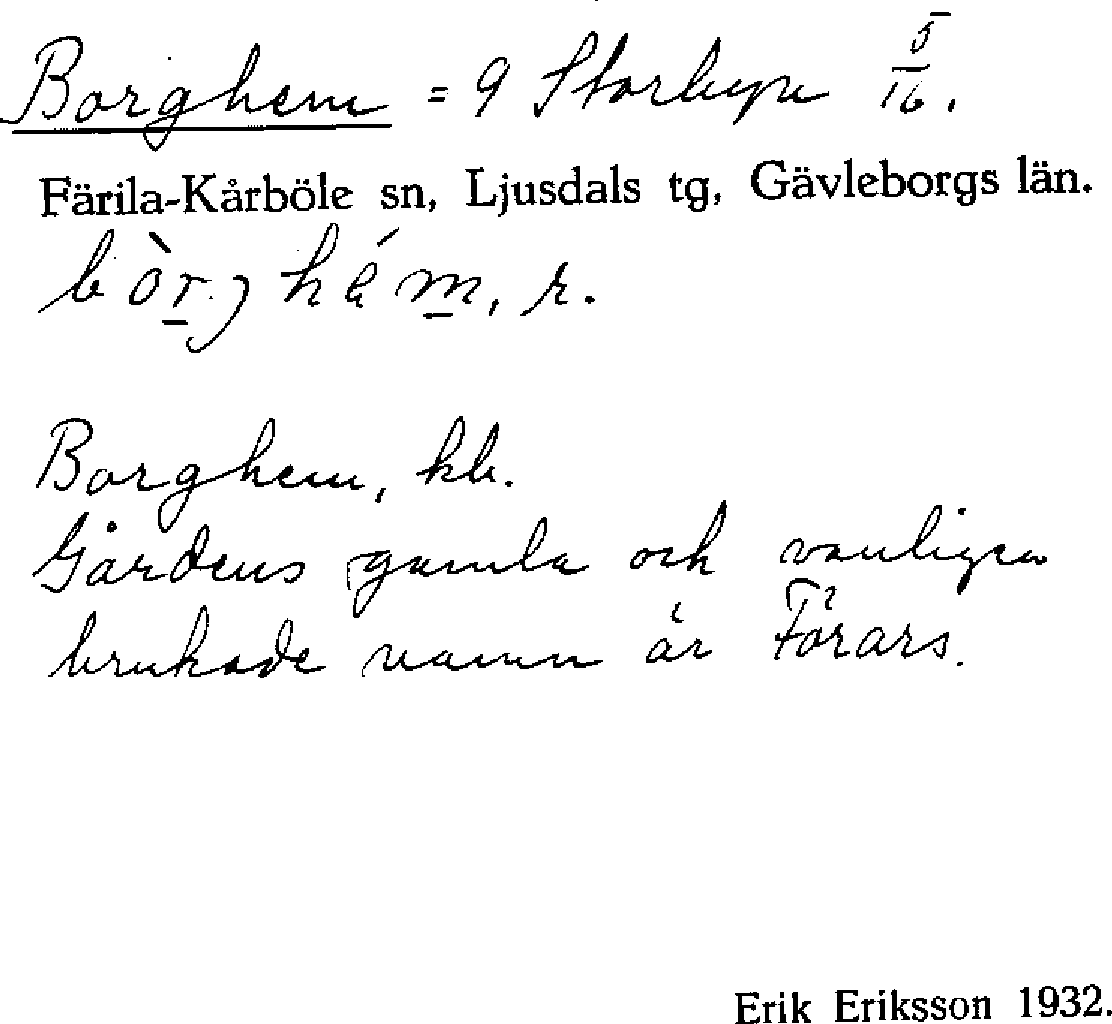 Borghem = 9 Storbyn 5/16.
Färila-Kårböle sn, Ljusdals tg, Gävleborgs län.
bòrjhém, r.
Borghem, kb.
Gårdens gamla och vanligen
brukade namn är Förars.
Erik Eriksson 1932.